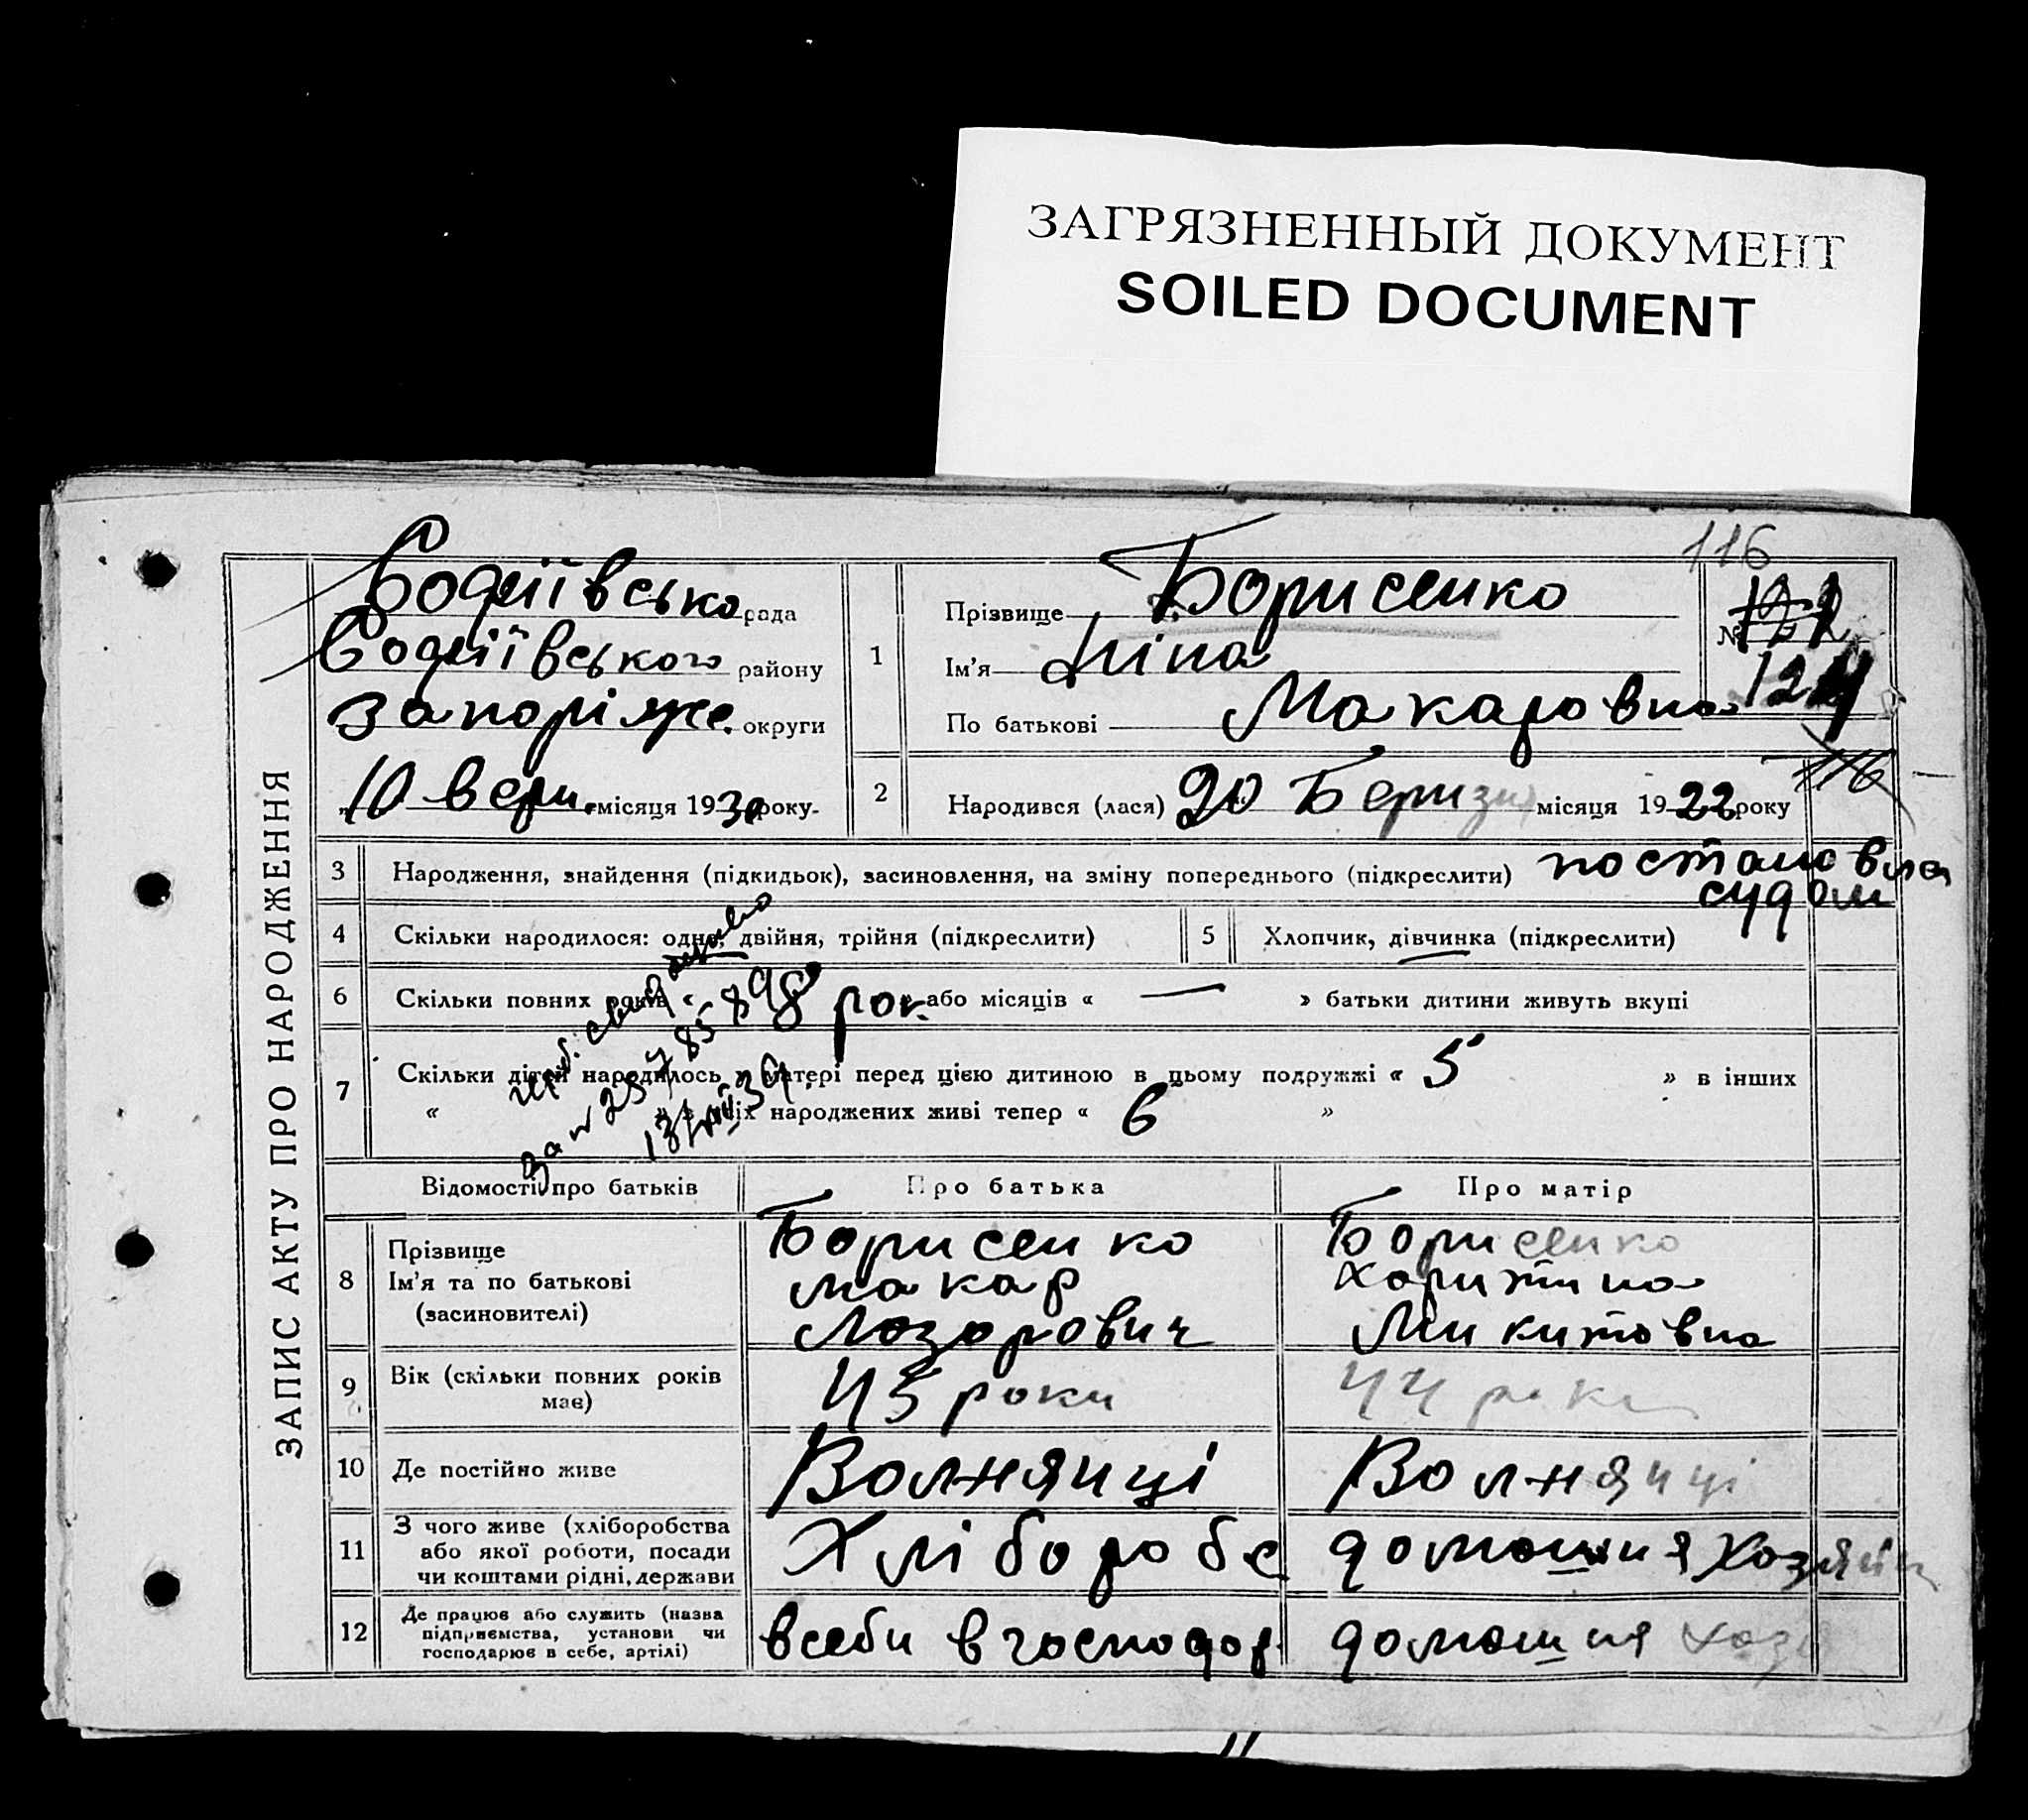 ЗАГРЯЗНЕННЫЙ ДОКУМЕНТ
SOILED DOCUMENT
116
ЗАПИС АКТУ ПРО НАРОДЖЕННЯ
Софиївсько рада
Софиївського району
Запоріже. округи
„10 вери. місяця 1930 року.
1
Прізвище Борисенко
Ім’я Ніна
По батькові Макаровна
№ 124
116
2
Народився (лася) 20 Беризня місяця 1922 року
3 Народження, знайдення (підкидьок), засиновлення, на зміну попереднього (підкреслити) постановлен
судом
4 Скільки народилося: одно, двійня, трійня (підкреслити)
5 Хлопчик, дівчинка (підкреслити)
6 Скільки повних років « 8 рок. або місяців « — » батьки дитини живуть вкупі
7 Скільки дітей народилось у матері перед цією дитиною в цьому подружжі « 5 » в інших
« » з їх народжених живі тепер « 6 »
Відомості про батьків Про батька Про матір
8
Прізвище
Ім’я та по батькові
(засиновителі)
Борисенко
Макар
Лазорович
Борисенко
Харитина
Микитовна
9 Вік (скільки повних років
має)
45 роки
44 роки
10 Де постійно живе Волнянці Волнянці
11 З чого живе (хліборобства
або якої роботи, посади
чи коштами рідні, держави
Хліборобс
домошня хозяйк
12 Де працює або служить (назва
підприємства, установи чи
господарює в себе, артілі)
всеби в господар
домошня хозя